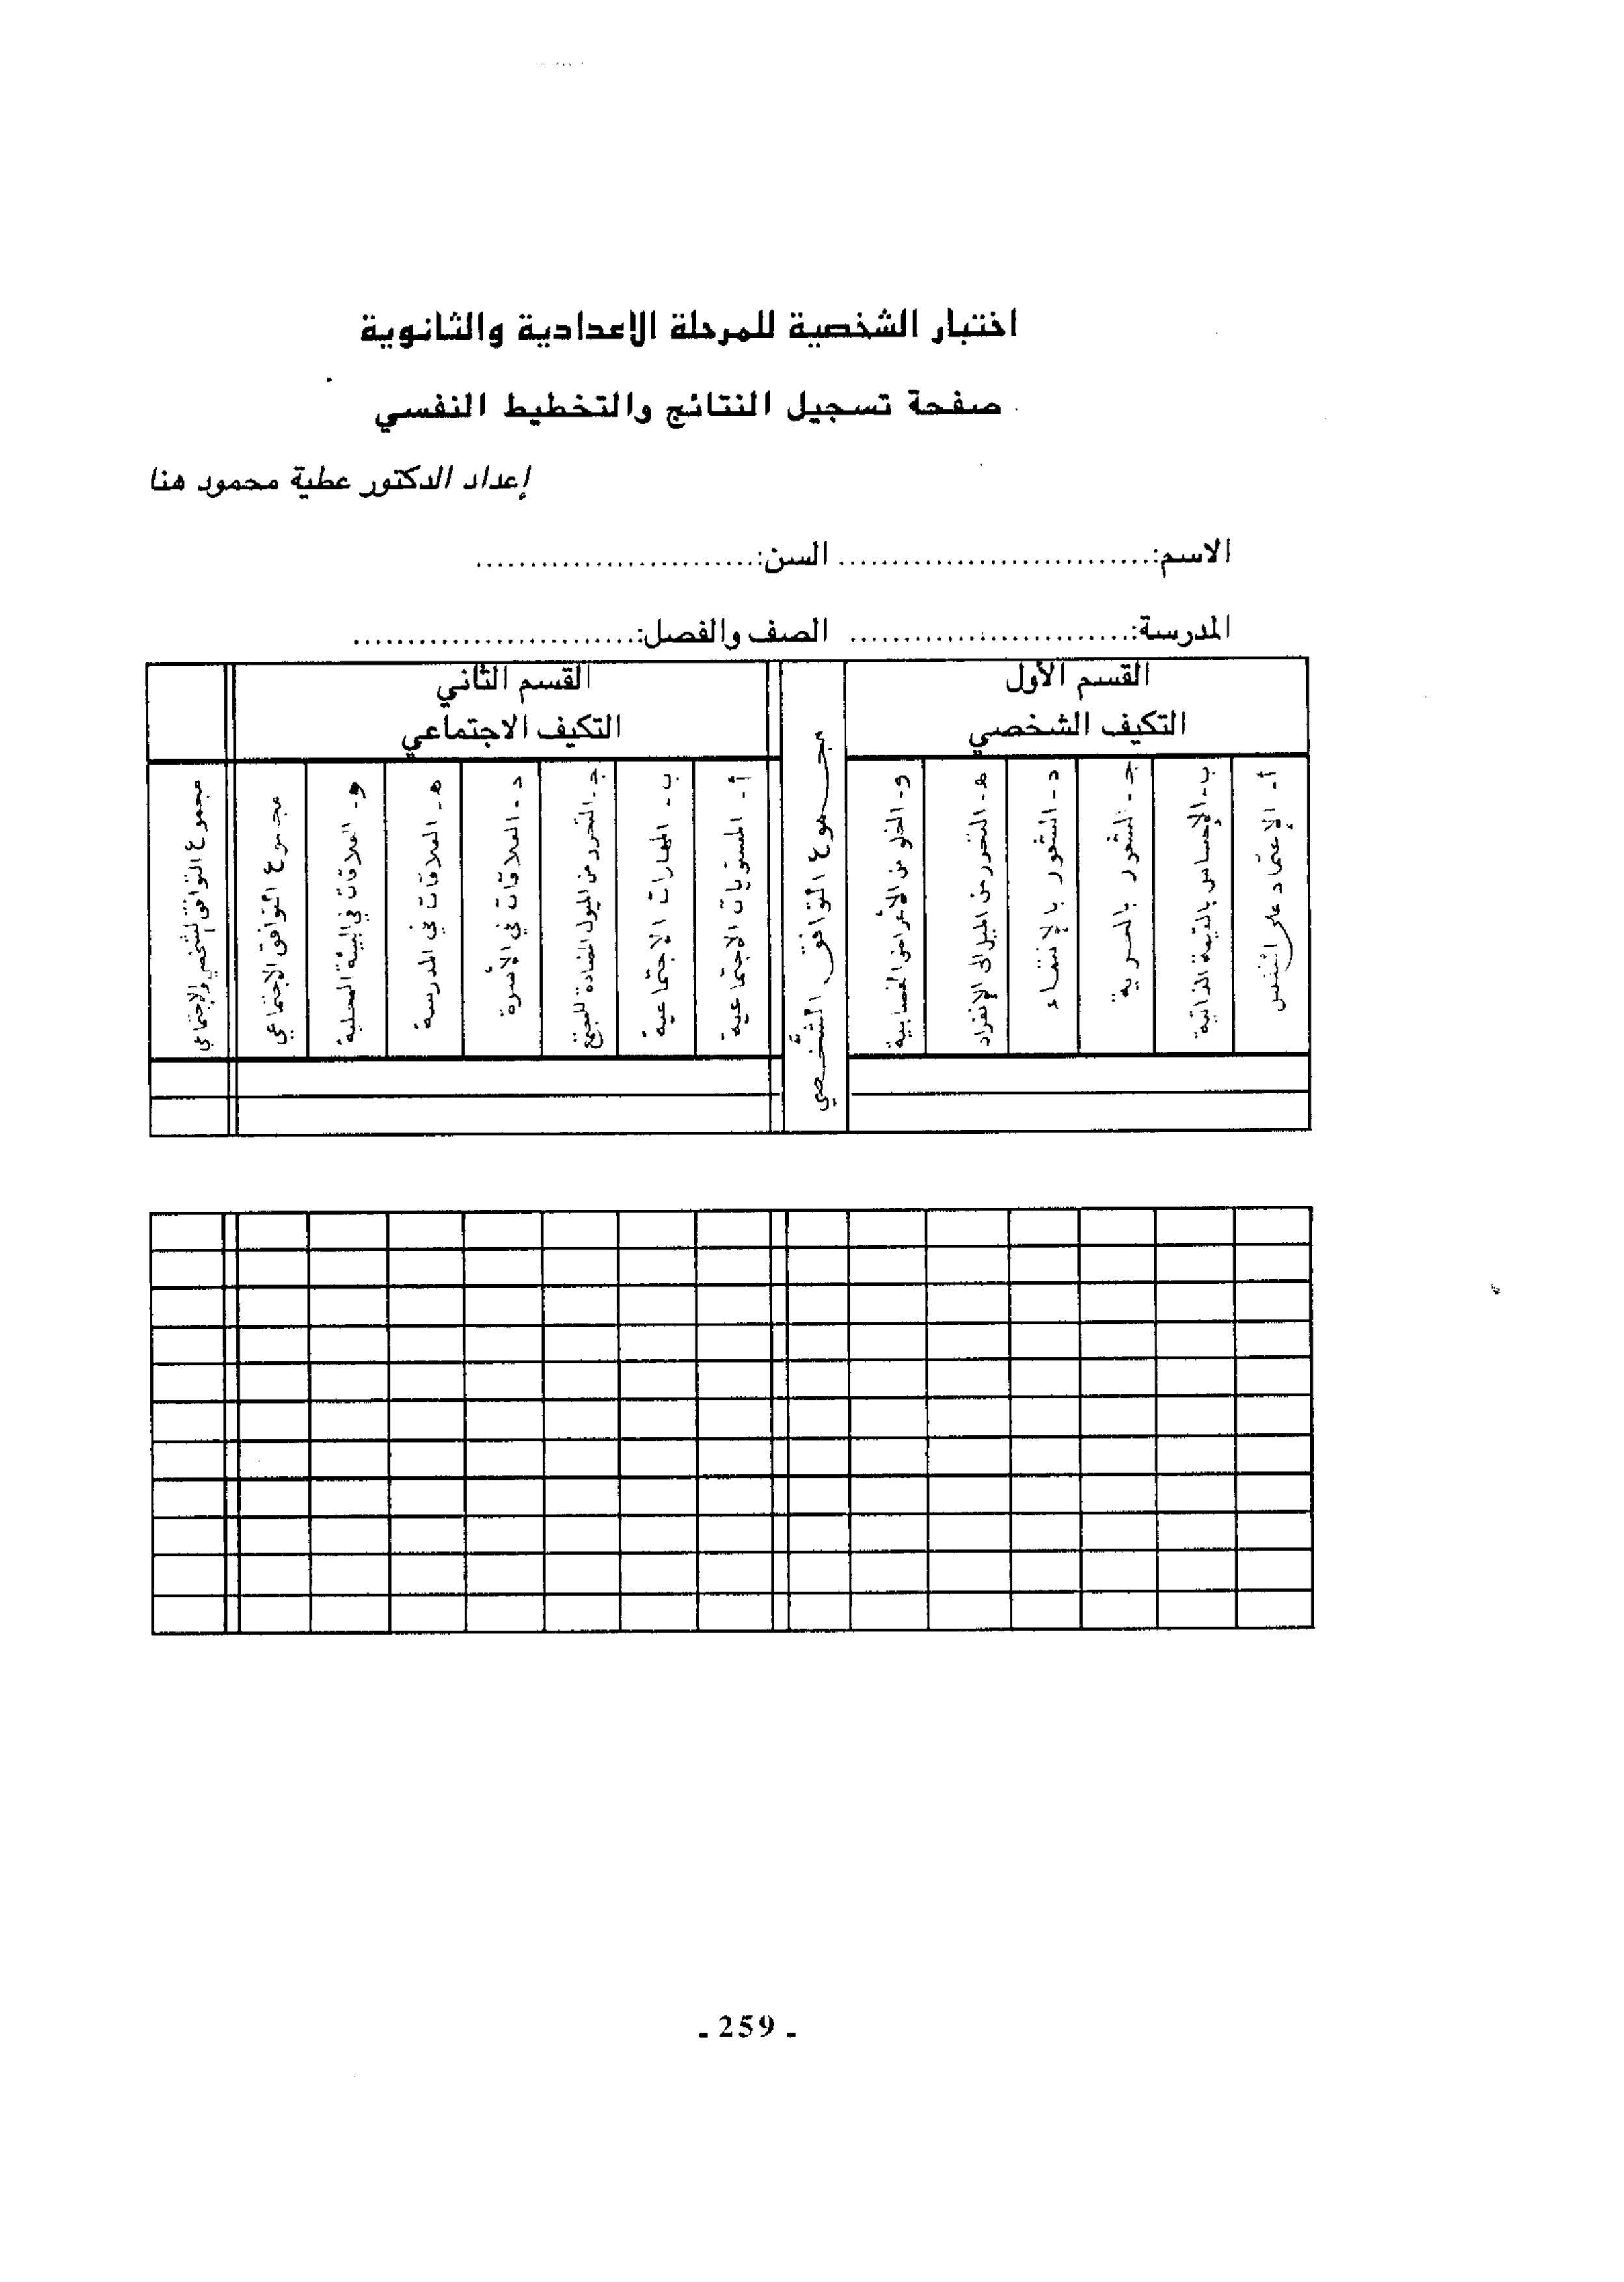 اختبار الشخصية للمرحلة الإعدادية والثانوية
صفحة تسجيل النتائج والتخطيط النفسي
إعداد الدكتور عطية محمود هنا
الاسم:............................. السن:..........................
المدرسة:.......................... الصف والفصل:..........................
القسم الأول
التكيف الشخصي
أ- الإعتماد على النفس
ب- الإحساس بالقيمة الذاتية
جـ- الشعور بالحرية
د- الشعور بالإنتماء
هـ- التحرر من الميل إلى الإنفراد
و- الخلو من الأعراض العصابية
مجموع التوافق الشخصي
القسم الثاني
التكيف الاجتماعي
أ- المستويات الاجتماعية
ب- المهارات الإجتماعية
جـ- التحرر من الميول المضادة للمجتمع
د- العلاقات في الأسرة
هـ- العلاقات في المدرسة
و- العلاقات في البيئة المحلية
مجموع التوافق الاجتماعي
مجموع التوافق الشخصي والإجتماعي
- 259 -